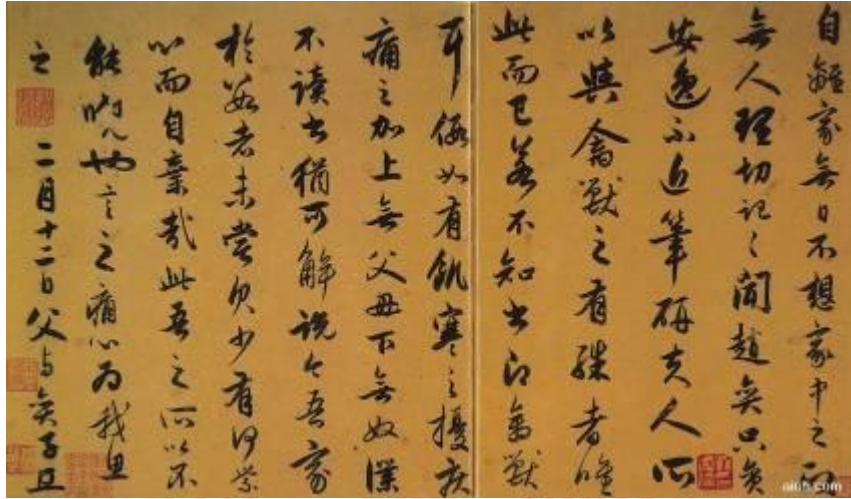 自離家無日不想家中之
無人理切記々聞趙奕只貪
安逸不近筆硯夫人所
以與禽獸之有殊者唯
此而已若不知書即禽獸
耳假如有飢寒之擾疾
痛之加上無父母下無奴僕
不讀書猶可解說今吾家
於數者未嘗欠少有何縈
心而自棄哉此吾之所以不
能曉也言之痛心為我思
之 二月十二日父与奕子